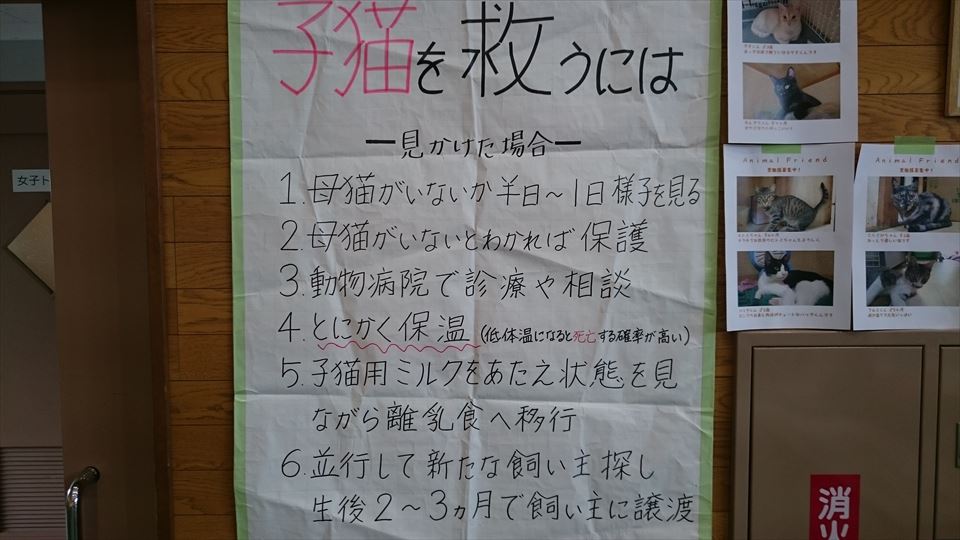 子猫を救うには
ー見かけた場合ー
1.母猫がいないか半日～1日様子を見る
2.母猫がいないとわかれば保護
3.動物病院で診療や相談
4.とにかく保温(低体温になると死亡する確率が高い)
5.子猫用ミルクをあたえ状態を見
ながら離乳食へ移行
6.並行して新たな飼い主探し
生後2～3ヵ月で飼い主に譲渡
女子ト
Animal Friend
里親様募集中!
Animal Friend
里親様募集中!
消火